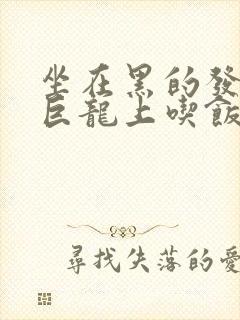 坐在黑的發
巨龍上喫飯
尋找失落的愛